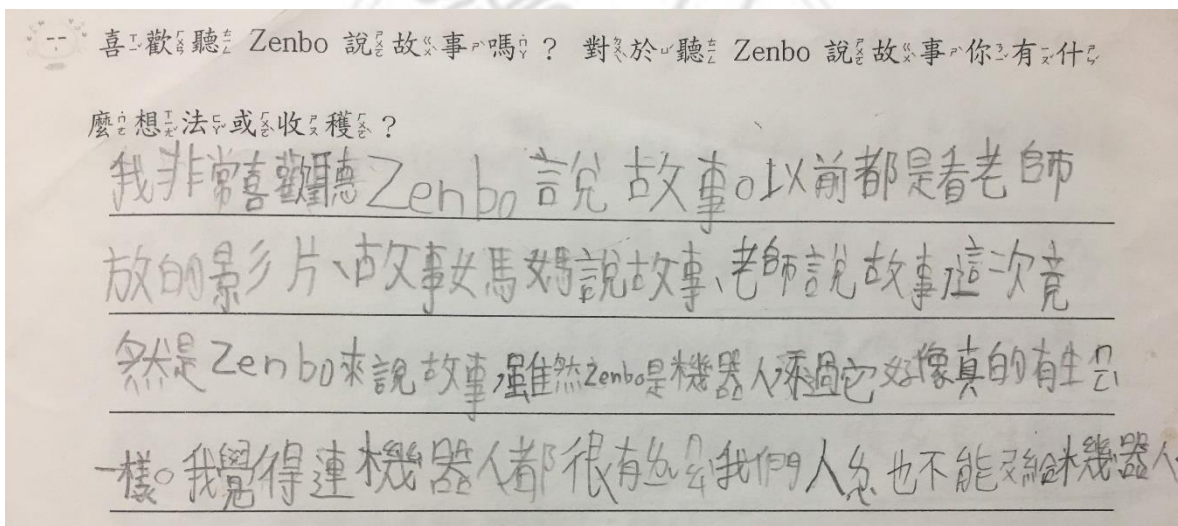 喜歡聽 Zenbo 說故事嗎？ 對於聽 Zenbo 說故事你有什
麼想法或收穫？
我非常喜歡聽Zenbo說故事。以前都是看老師
放的影片、故事媽媽說故事、老師說故事,這次竟
然是Zenbo來說故事,雖然Zenbo是機器人不過它好像真的有生
一樣。我覺得連機器人都很有 我們人 也不能 給機器人